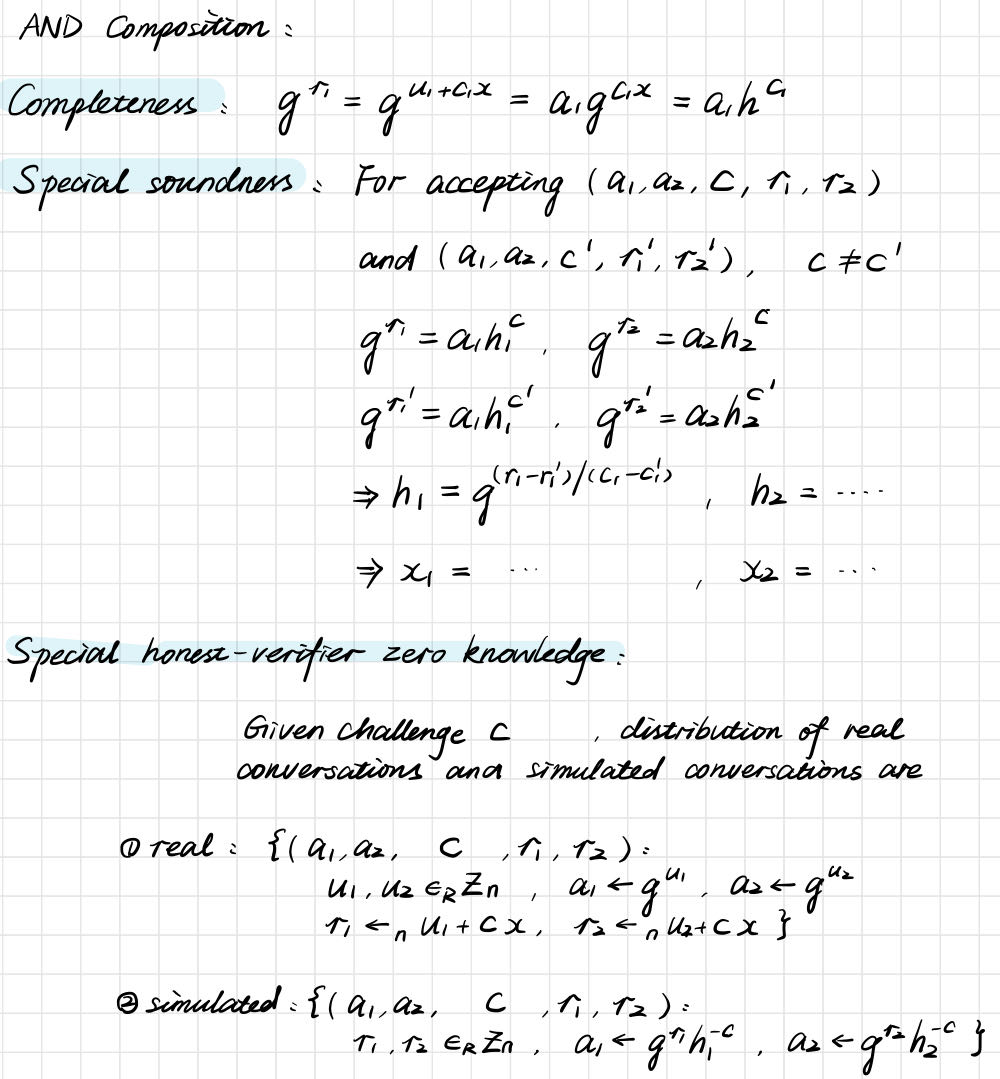 AND Composition :
Completeness : g^{r₁} = g^{u₁+c₁x} = a₁g^{c₁x} = a₁h^{c₁}
Special soundness : For accepting (a₁, a₂, c, r₁, r₂)
and (a₁, a₂, c', r₁', r₂'), c ≠ c'
g^{r₁} = a₁h₁^{c}, g^{r₂} = a₂h₂^{c}
g^{r₁'} = a₁h₁^{c'}, g^{r₂'} = a₂h₂^{c'}
⇒ h₁ = g^{(r₁-r₁')/(c₁-c₁')}, h₂ = ····
⇒ x₁ = ···, x₂ = ···
Special honest-verifier zero knowledge :
Given challenge c , distribution of real
conversations and simulated conversations are
① real : {(a₁, a₂, c, r₁, r₂) :
u₁, u₂ ∈_R ℤₙ, a₁ ← g^{u₁}, a₂ ← g^{u₂}
r₁ ←ₙ u₁+cx, r₂ ←ₙ u₂+cx }
② simulated : {(a₁, a₂, c, r₁, r₂) :
r₁, r₂ ∈_R ℤₙ, a₁ ← g^{r₁}h₁^{-c}, a₂ ← g^{r₂}h₂^{-c} }